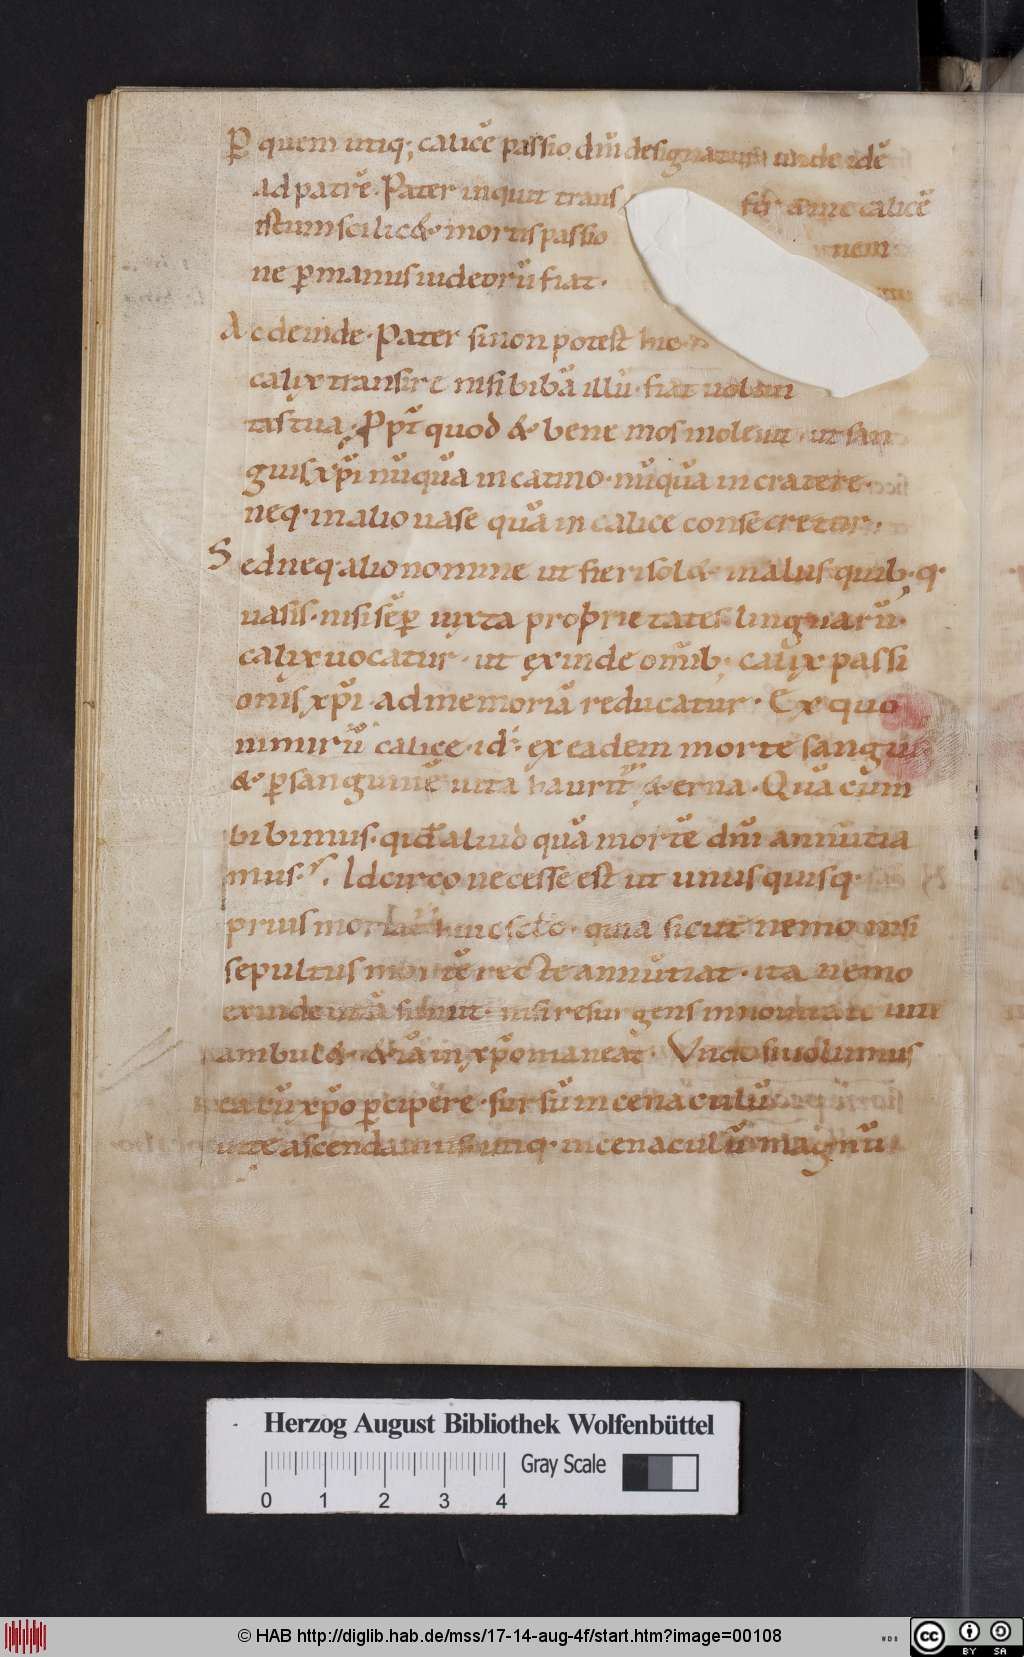 ꝑ quem utiq; calicē passio dn̄i designatur unde idē
ad patrē. Pater inquit trans fer a me calicē
istum scilic& mortis passio nem
ne ꝑ manus iudeorū fiat.
Ac deinde. Pater si non potest hic
calix transire nisi bibā illū. fiat uolun
tas tua. Ꝓpt̄ quod & bene mos inoleuit. ut san
guis xp̄i nūquā in catino. nūquā in cratere.
neq. in alio uase quā in calice consecretur.
Sed neq. alio nomine ut fieri sol& in aliis quib; q.
uasis. nisi sēꝑ iuxta proprietates linguarū.
calix uocatur. ut exinde omīb; calix passi
onis xp̄i ad memoriā reducatur. Ex quo
nimirū calice. id. ex eadem morte sanguis
& ꝑ sanguinē uita haurit̄ &erna. Quā cūm
bibimus. qid aliud quā mortē dn̄i annūtia
mus. Idcirco necesse est ut unus quisq.
prius moriat̄ huic sc̄lo. quia sicut nemo nisi
sepultus mortē recte annūtiat. ita nemo
exinde uitā sumit. nisi resurgens in nouitate uite
ambul& . &iā in xp̄o maneat. Unde si uolumus
ea cū xp̄o ꝑcipere. sursū in cenaculū
uite ascendamus utiq. in cenaculū magnū
Herzog August Bibliothek Wolfenbüttel
Gray Scale
0 1 2 3 4
© HAB http://diglib.hab.de/mss/17-14-aug-4f/start.htm?image=00108
WDB
cc BY SA